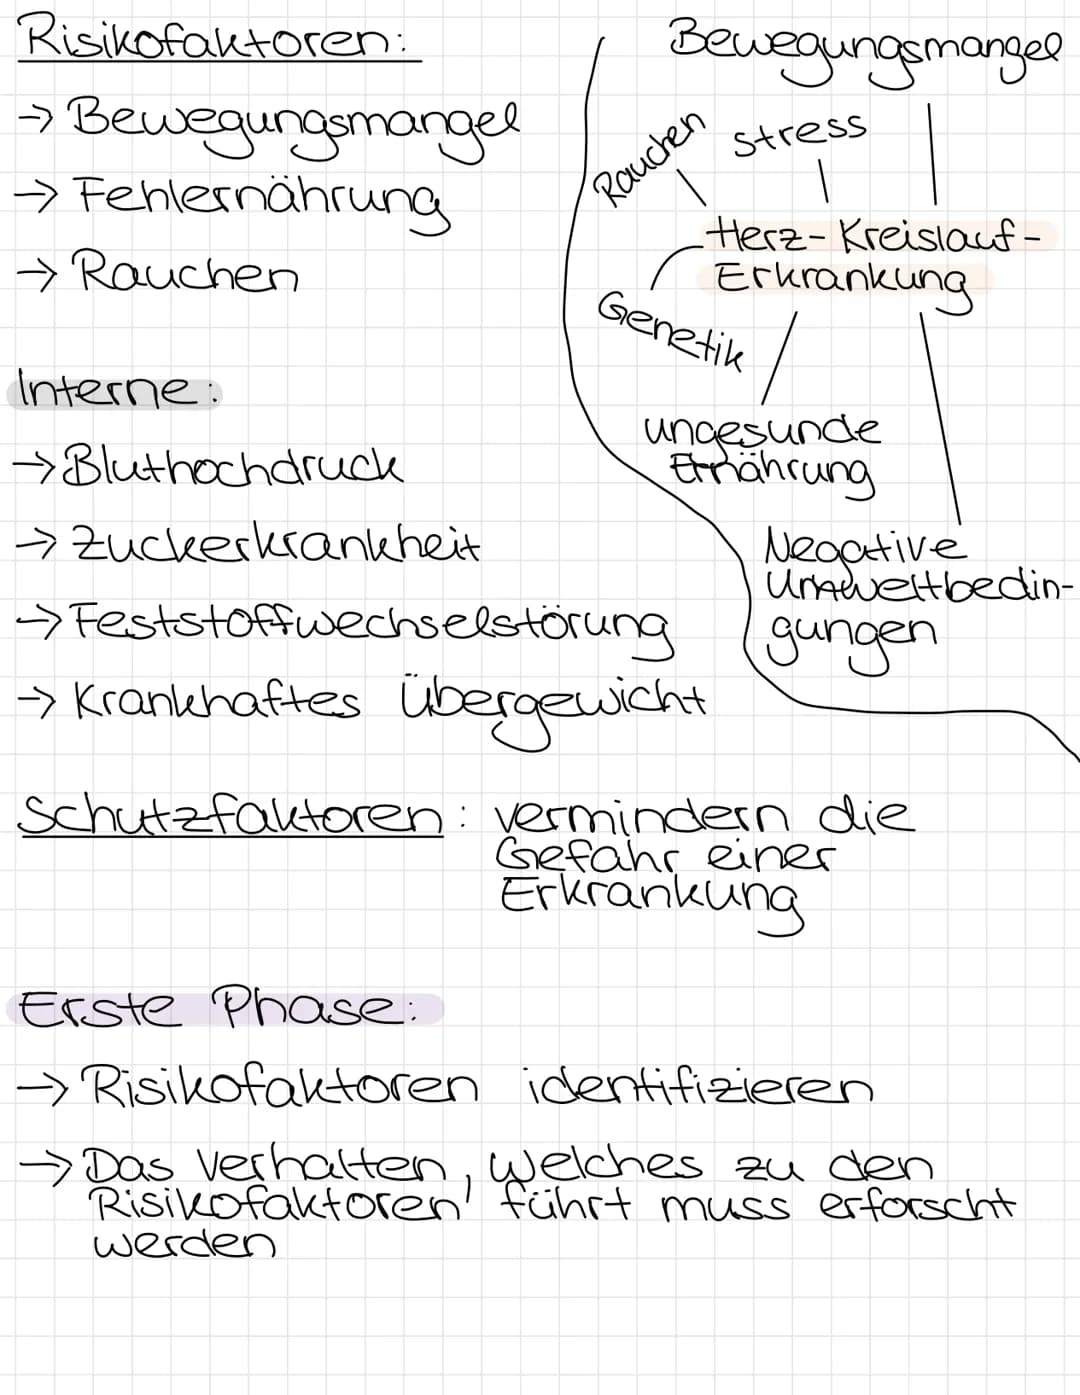 Risikofaktoren:
→ Bewegungsmangel
→ Fehlernährung
→ Rauchen
Bewegungsmangel
Rauchen
stress
Herz-Kreislauf-
Erkrankung
Genetik
ungesunde
Ernährung
Negative
Umweltbedin-
gungen
Interne:
→ Bluthochdruck
→ Zuckerkrankheit
→ Feststoffwechselstörung
→ Krankhaftes Übergewicht
Schutzfaktoren: vermindern die
Gefahr einer
Erkrankung
Erste Phase:
→ Risikofaktoren identifizieren
→ Das Verhalten, welches zu den
Risikofaktoren' führt muss erforscht
werden